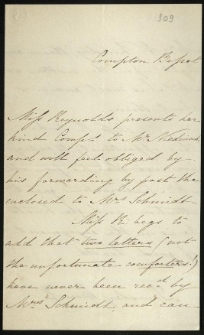 309
Compton
Miss Reynolds presents her
kind Compts to Mr
and will feel obliged by
his forwarding by post the
enclosed to Mrs Schmidt
Miss R begs to
add that two letters (not
the unfortunate comforters!)
have never been recd by
Mrs Schmidt, and can